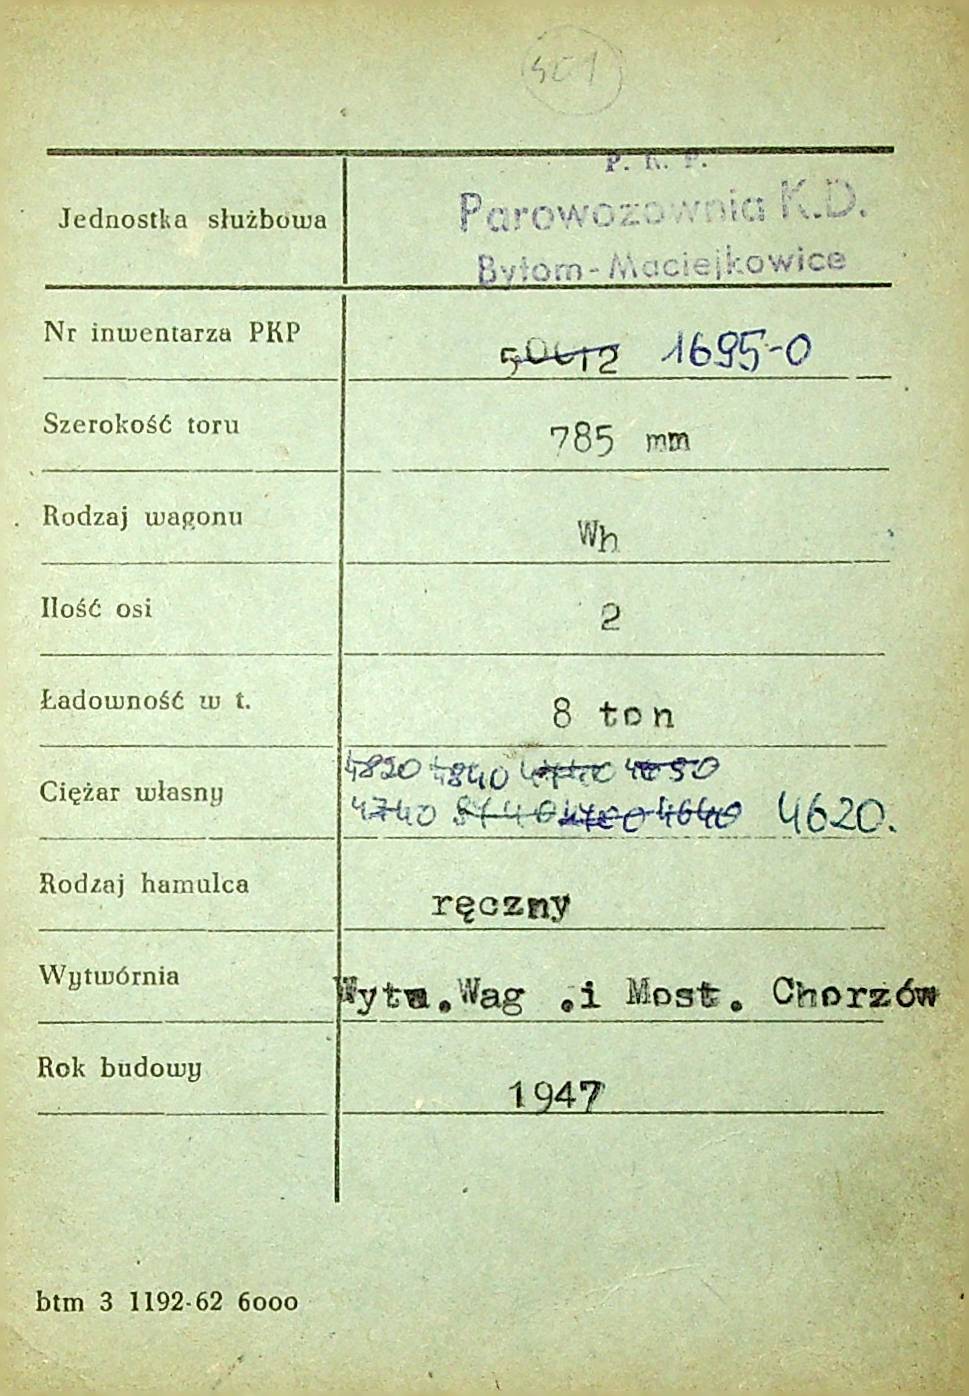 P. K. P.
Jednostka służbowa Parowozownia K.D.
Bytom-Maciejkowice
Nr inwentarza PKP 1695-0
Szerokość toru 785 mm
Rodzaj wagonu Wh
Ilość osi 2
Ładowność w t. 8 ton
4820 4840
Ciężar własny 4740 4640 4620.
Rodzaj hamulca ręczny
Wytwórnia Wytw.Wag .i Most. Chorzów
Rok budowy 1947
btm 3 1192-62 6000